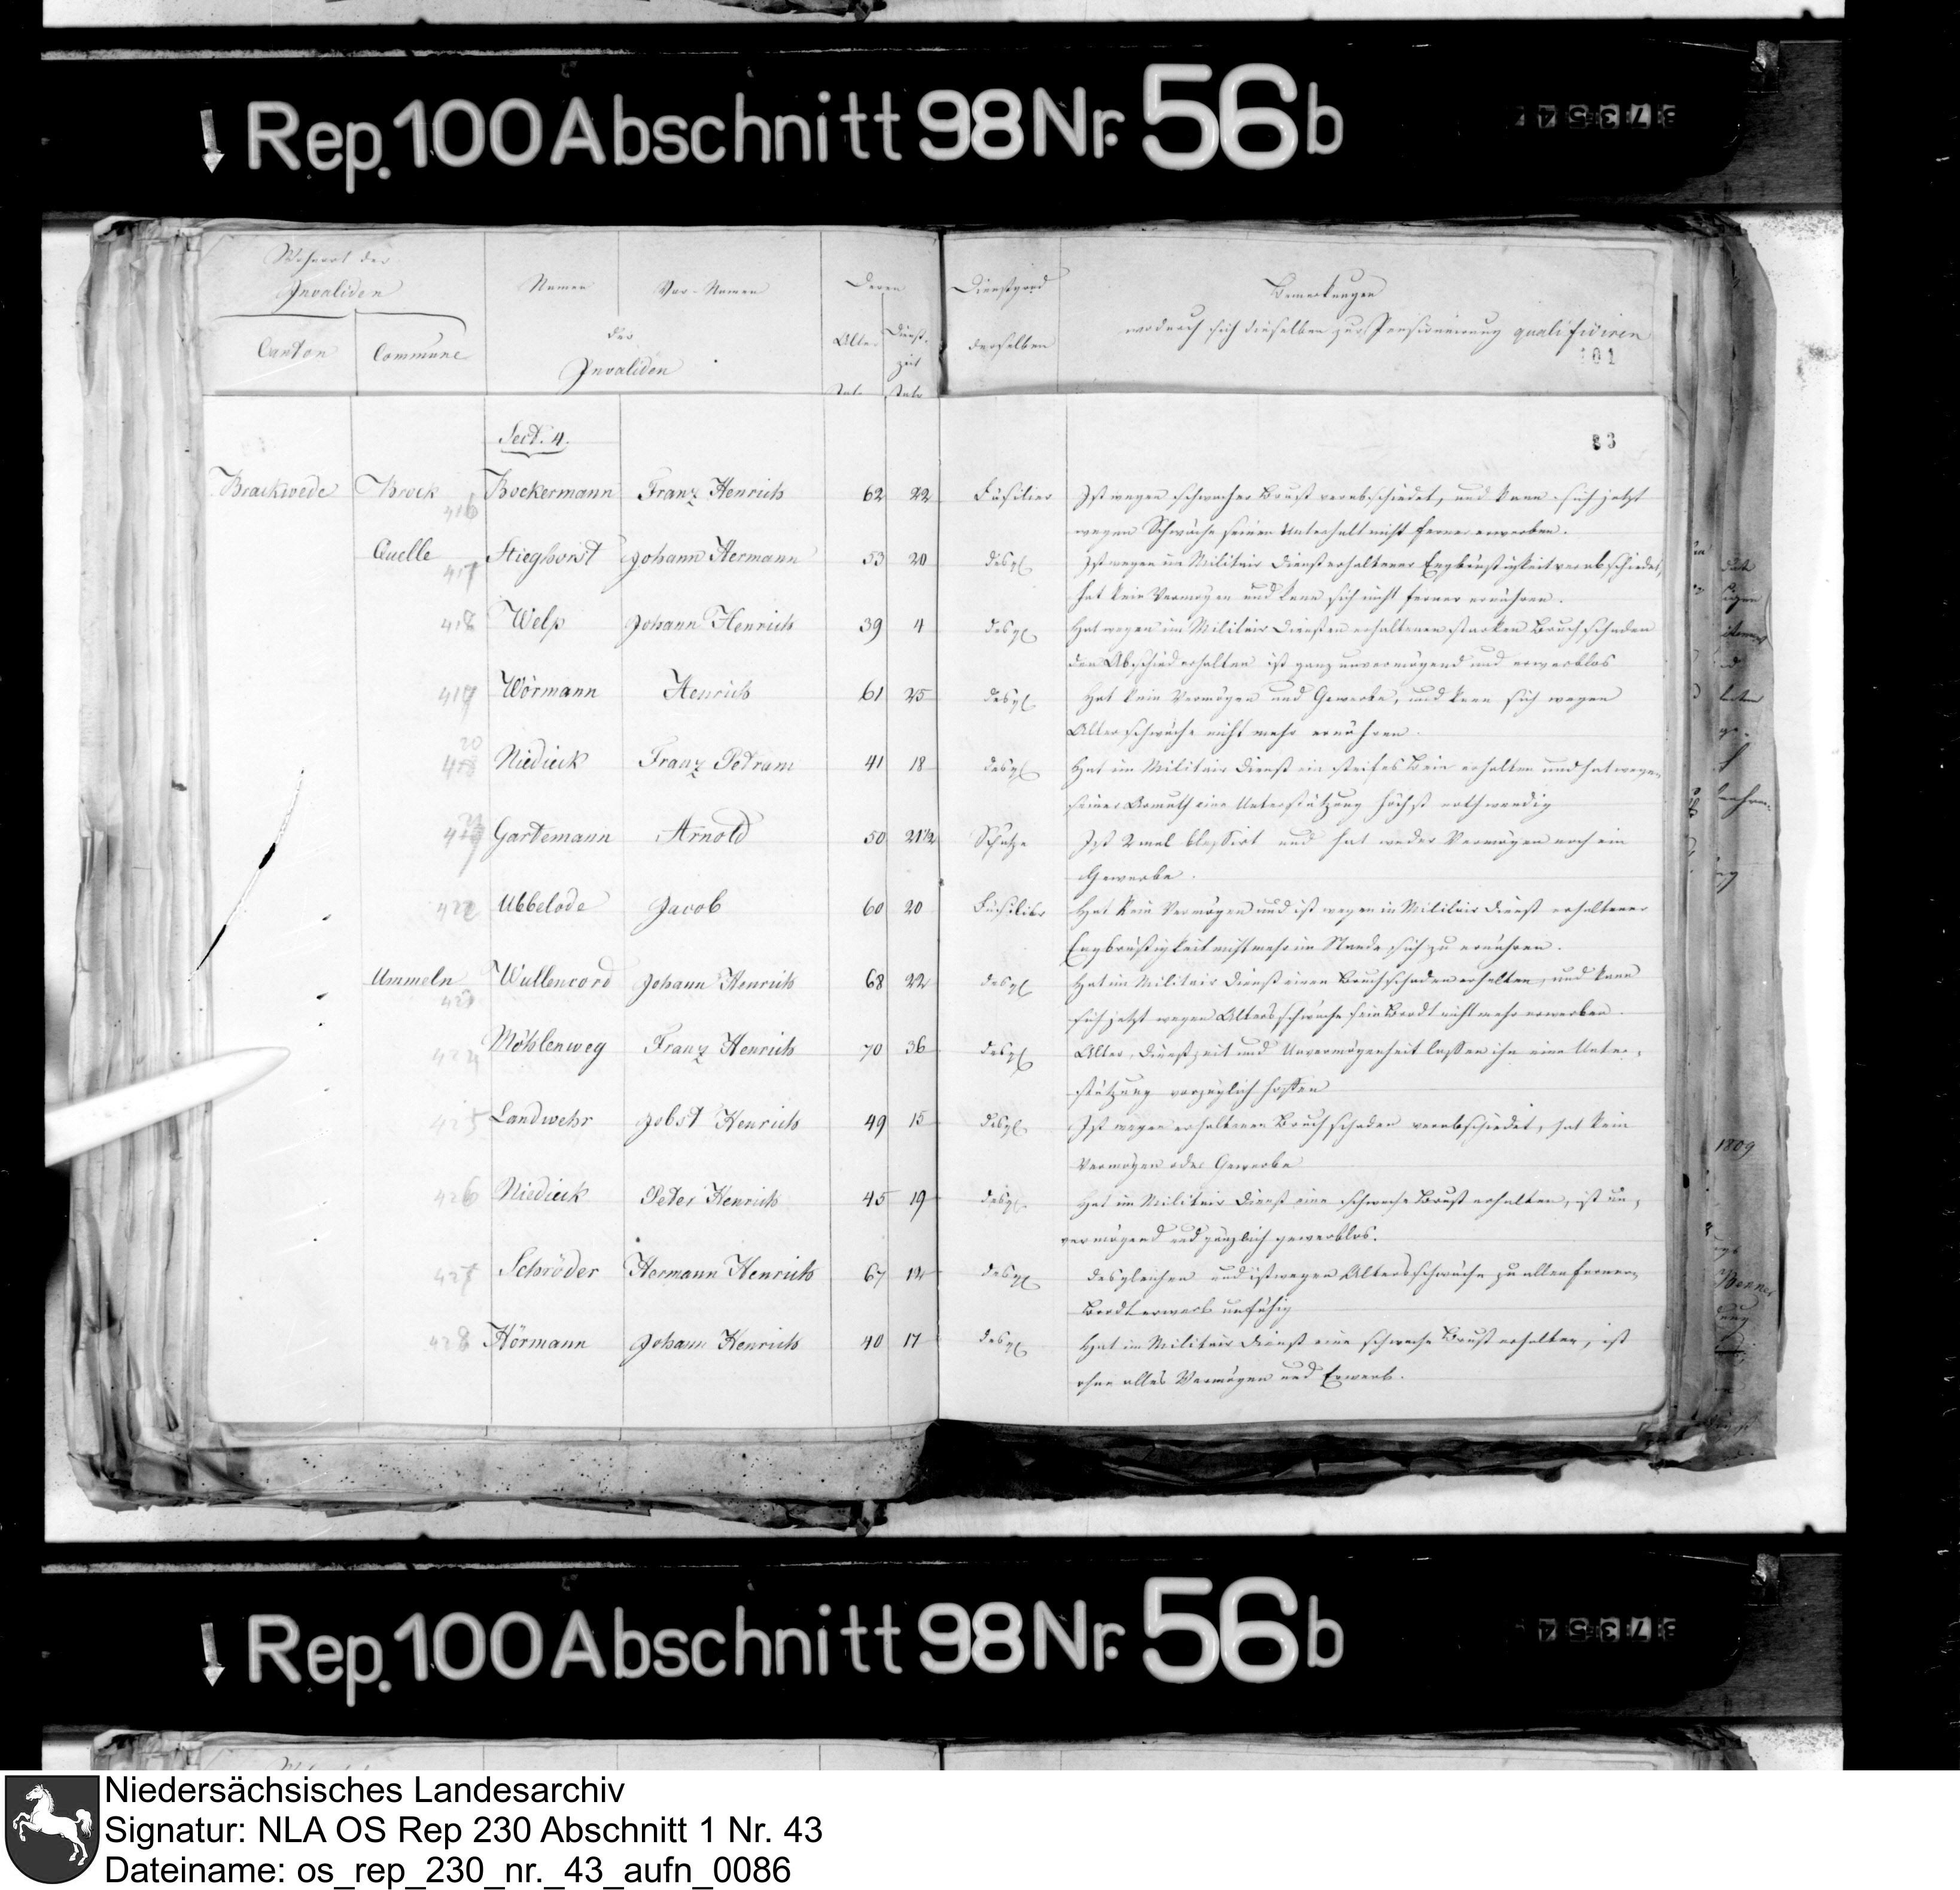 ↓ Rep. 100 Abschnitt 98 Nr. 56 b
Wohnort der
Invaliden
Namen
Vor-Namen
Deren
Dienstgrad
Bemerkungen
Canton
Commune
der
Invaliden
Alter
Dienst-
zeit
derselben
wodurch sich dieselben zur Pensionierung qualifiziren
101
Jahr
Jahr
Sect. 4.
83
Brackwede Brock 416 Bockermann Franz Henrich 62 22 Füsilier Ist wegen schwacher Brust verabschiedet, und kann sich jetzt
wegen Schwäche seinen Unterhalt nicht ferner erwerben.
Quelle 417 Stieghorst Johann Hermann 53 20 desgl Ist wegen im Militair Dienst erhaltener Engbrüstigkeit verabschiedet,
hat kein Vermögen und kann sich nicht ferner ernähren.
418 Welp Johann Henrich 39 4 desgl Hat wegen im Militair Diensten erhaltenen starken Bruchschaden
den Abschied erhalten ist ganz unvermögend und erwerblos
419 Wörmann Henrich 61 25 desgl Hat kein Vermögen und Gewerbe, und kann sich wegen
Altersschwäche nicht mehr ernähren.
20
Niedieck Franz Petram 41 18 desgl Hat im Militair Dienst ein steifes Bein erhalten und hat wegen
seiner Armuth eine Unterstützung höchst nothwendig
Gartemann Arnold 50 21½ Schütze Ist 2 mal blessirt und hat weder Vermögen noch ein
Gewerbe.
422 Ubbelode Jacob 60 20 Füsilier Hat kein Vermögen und ist wegen in Militair Dienst erhaltener
Engbrüstigkeit nicht mehr im Stande sich zu ernähren.
Ummeln 423 Wullencord Johann Henrich 68 22 desgl Hat im Militair Dienst einen Bruchschaden erhalten, und kann
sich jetzt wegen Altersschwäche sein Brodt nicht mehr erwerben.
424 Möhlenweg Franz Henrich 70 36 desgl Alter, Dienstzeit und Unvermögenheit lassen ihn eine Unter-
stützung vorzüglich hoffen
425 Landwehr Jobst Henrich 49 15 desgl Ist wegen erhaltenen Bruchschaden verabschiedet, hat kein
Vermögen oder Gewerbe
426 Niedieck Peter Henrich 45 19 desgl Hat im Militair Dienst eine schwache Brust erhalten, ist un-
vermögend und gänzlich gewerblos.
427 Schröder Hermann Henrich 67 12 desgl desgleichen und ist wegen Altersschwäche zu allen fernern
Brodterwerb unfähig
428 Hörmann Johann Henrich 40 17 desgl Hat im Militair Dienst eine schwache Brust erhalten, ist
ohne alles Vermögen und Erwerb.
1809
↓ Rep. 100 Abschnitt 98 Nr. 56 b
Niedersächsisches Landesarchiv
Signatur: NLA OS Rep 230 Abschnitt 1 Nr. 43
Dateiname: os_rep_230_nr._43_aufn_0086